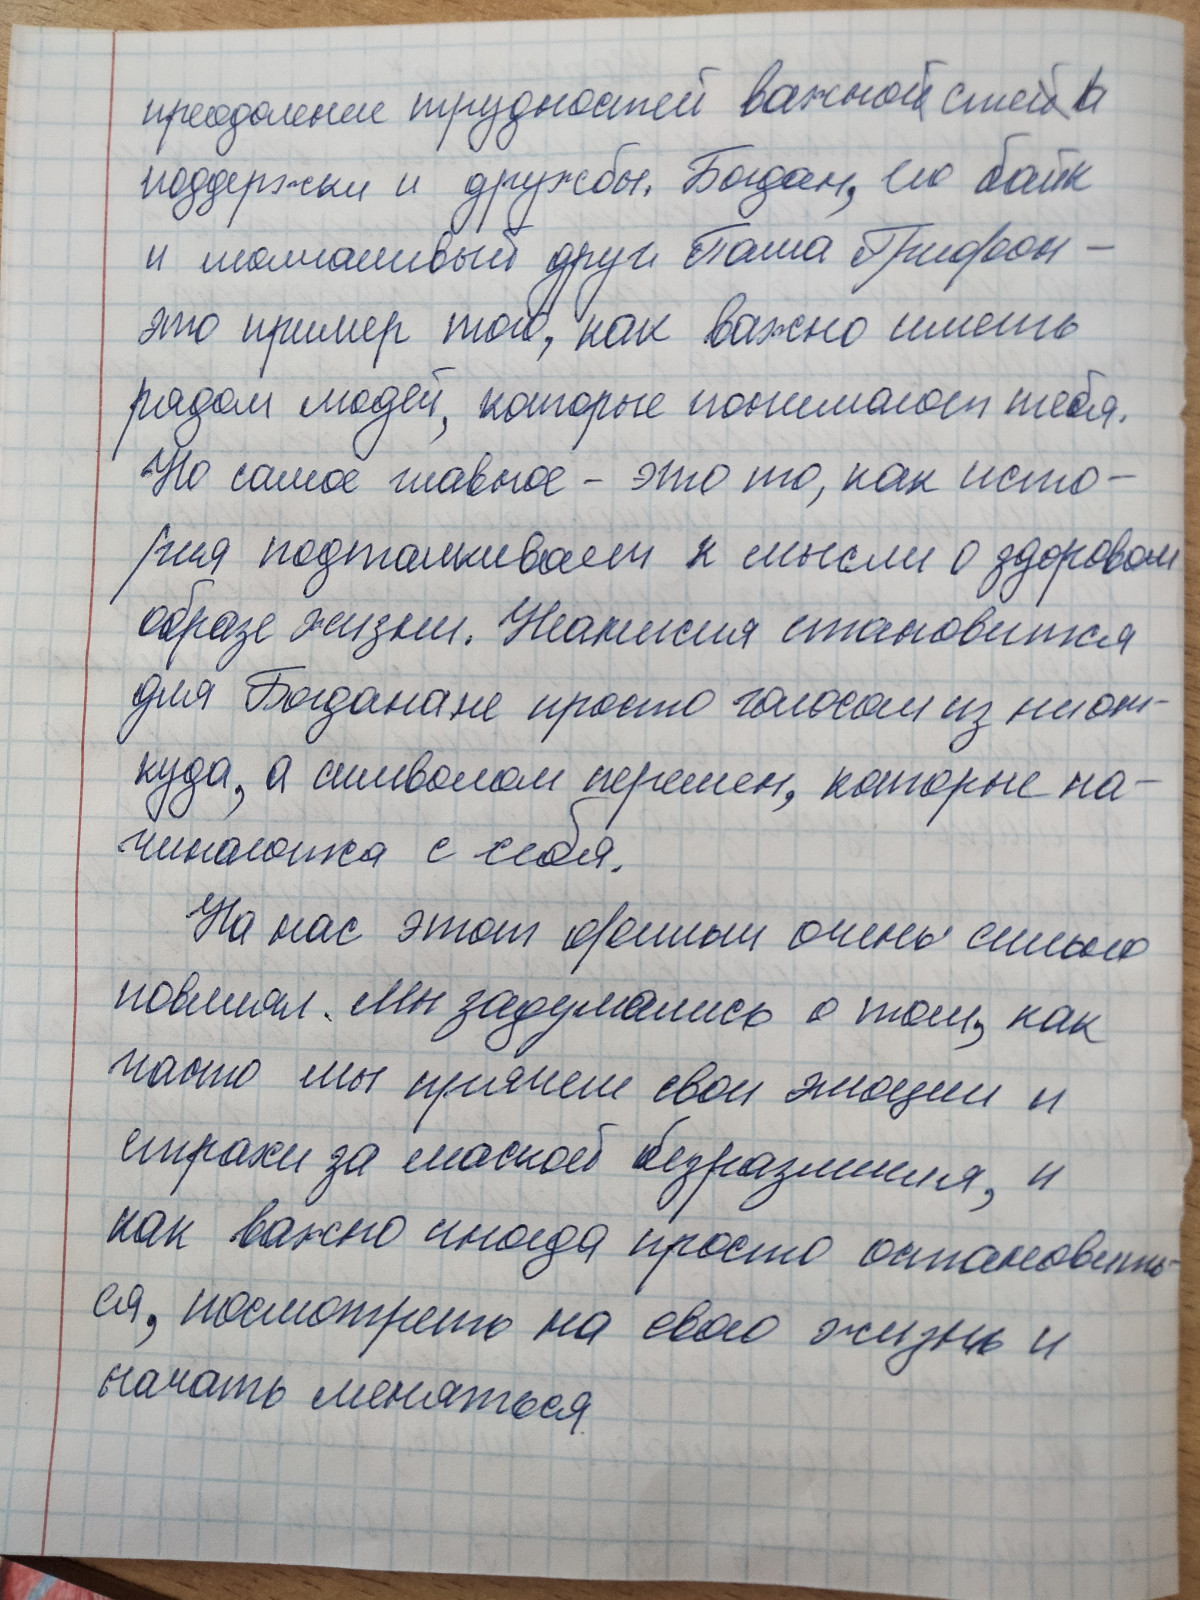 преодоление трудностей важной
поддержки и дружбы. Богдан, его байк
и молчаливый друг Паша Грифон –
это пример того, как важно иметь
рядом людей, которые понимают тебя.
Но самое главное – это то, как исто-
рия подталкивает к мысли о здоровом
образе жизни. Неаписия становится
для Богдана не просто голосом из ниот-
куда, а символом перемен, которые на-
чинаются с себя.
На нас этот фильм очень сильно
повлиял. Мы задумались о том, как
часто мы прячем свои эмоции и
страхи за маской безразличия, и
как важно иногда просто остановить-
ся, посмотреть на свою жизнь и
начать меняться